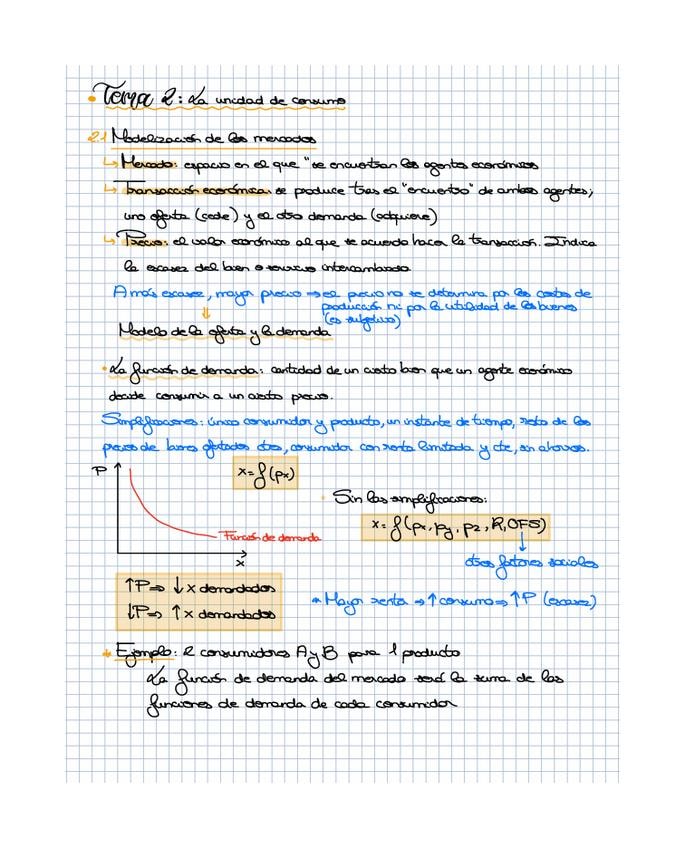 • Tema 2: La unidad de consumo
2.1 Modelización de los mercados
↳ Mercado: espacio en el que "se encuentran los agentes económicos
↳ Transacción económica: se produce tras el "encuentro" de ambos agentes;
uno oferta (cede) y el otro demanda (adquiere)
↳ Precio: el valor económico al que se acuerda hacer la transacción. Indica
la escasez del bien o servicio intercambiado
A más escasez, mayor precio ⇒ el precio no se determina por los costes de
producción ni por la utilidad de los bienes
(es subjetivo)
⇓
Modelo de la oferta y la demanda
• La función de demanda: cantidad de un cierto bien que un agente económico
decide consumir a un cierto precio.
Simplificaciones: único consumidor y producto, un instante de tiempo, resto de los
precios de bienes ofertados ctes, consumidor con renta limitada y cte, sin ahorros.
P
x = f(px)
Función de demanda
x
Sin las simplificaciones:
x = f(px, py, pz, R, OFS)
otros factores sociales
↑P ⇒ ↓ x demandados
↓P ⇒ ↑ x demandados
* Mayor renta ⇒ ↑ consumo ⇒ ↑P (escasez)
* Ejemplo: 2 consumidores A y B para 1 producto
La función de demanda del mercado será la suma de las
funciones de demanda de cada consumidor